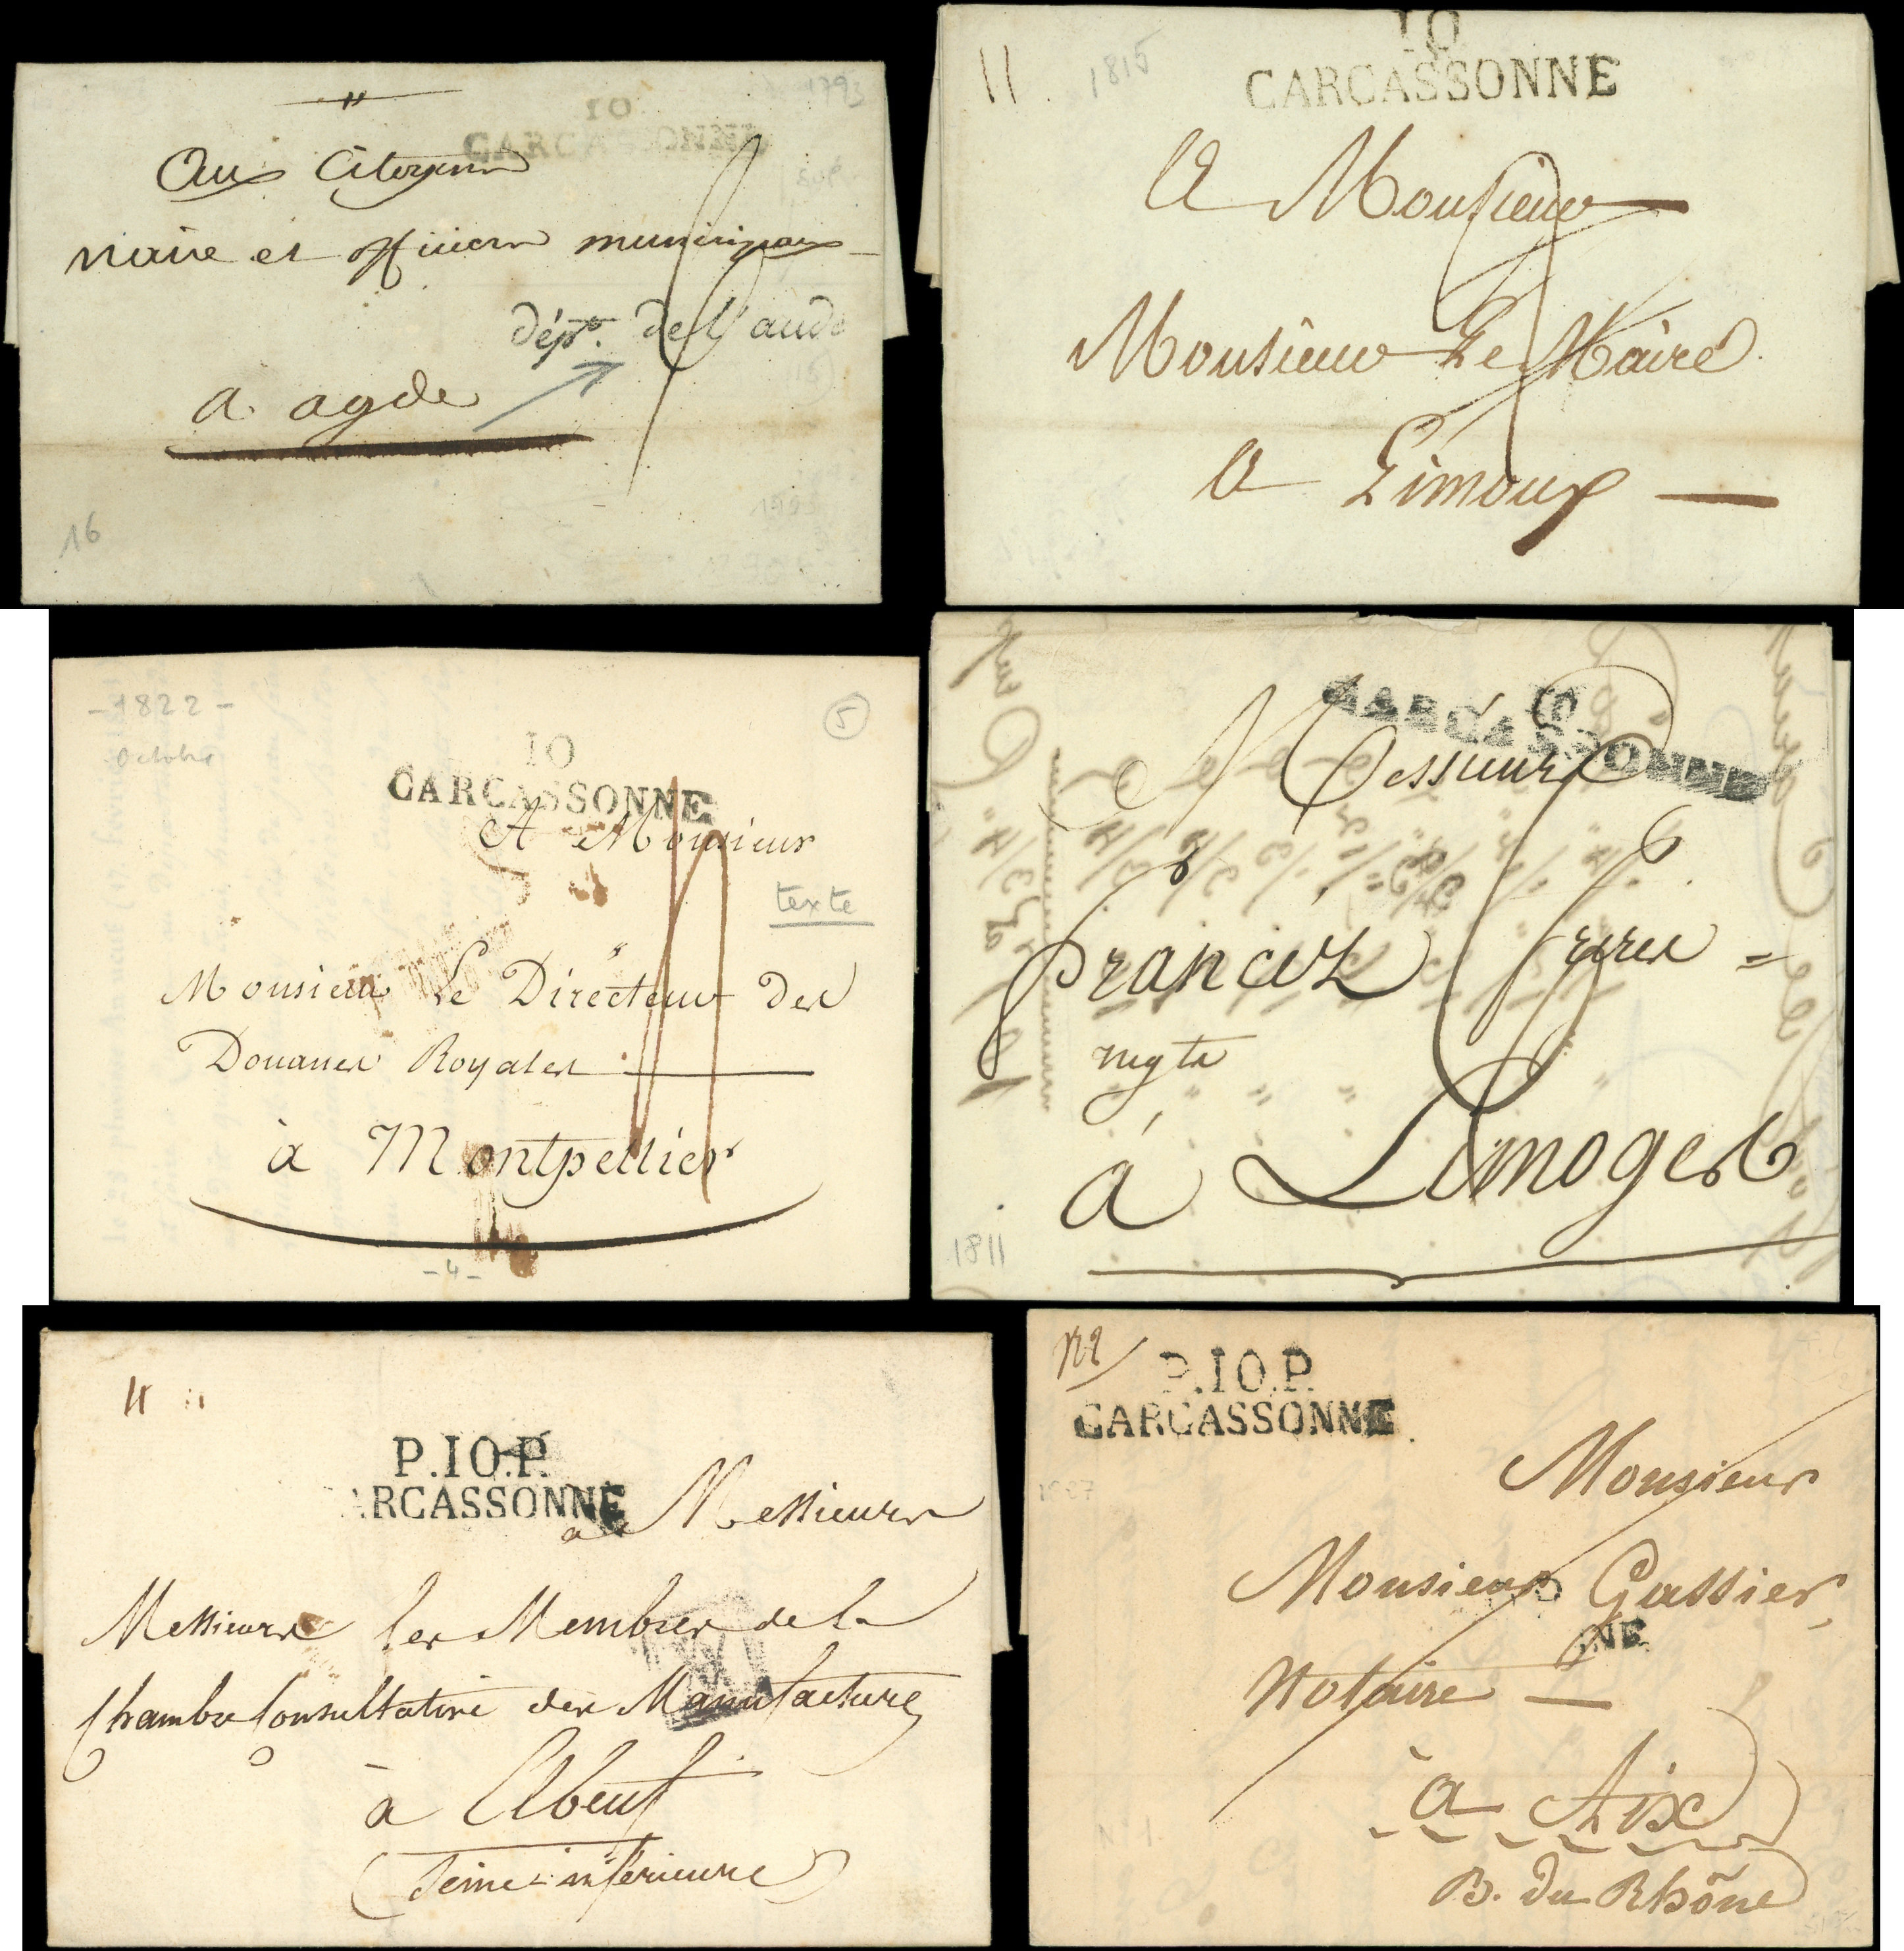 1793
10
CARCASSONNE
Aux Citoyens
maire et officiers municipaux
dépt. de l'aude
a agde
16
11
1815
10
CARCASSONNE
A Monsieur
Monsieur Le Maire
a Limoux
1822
octobre
5
10
CARCASSONNE
A Monsieur
texte
Monsieur Le Directeur des
Douanes Royales
à Montpellier
4
10
CARCASSONNE
Messieurs
francéz freres
negts
à Limoges
1811
P.10.P.
ARCASSONNE
a Messieurs
Messieurs les Membres de la
Chambre Consultative des Manufactures
à Elbeuf
(Seine inférieure)
P.10.P.
CARCASSONNE
Monsieur
Monsieur Gassier,
NE
Notaire
à Aix
B. du Rhône
N° 1.